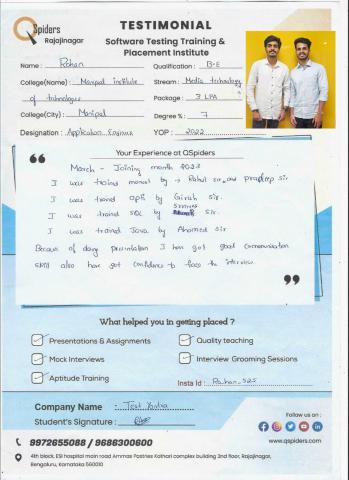 QSpiders
Rajajinagar
TESTIMONIAL
Software Testing Training &
Placement Institute
Name : Rohan
Qualification : B-E
College(Name) : Manipal institute
of technology
Stream : Media technology
Package : 3 LPA
College(City) : Manipal
Degree % : 7
Designation : Application Engineer
YOP : 2022
Your Experience at QSpiders
March - Joining month 2023
I was trained manual by → Rahul sir and pradeep sir
I was traned api by Girish sir.
I was traned SQL by sir.
I was trained Java by Ahamed sir
Because of doing presentation I have got good communication
skill also have got confidence to face the interview.
What helped you in getting placed ?
Presentations & Assignments
Quality teaching
Mock Interviews
Interview Grooming Sessions
Aptitude Training
Insta Id : Rohan_525
Company Name : Test Yantra
Student's Signature :
Follow us on :
9972655088 / 9686300600
www.qspiders.com
4th block, ESI hospital main road Ammas Pastries Kothari complex building 2nd floor, Rajajinagar,
Bengaluru, Karnataka 560010